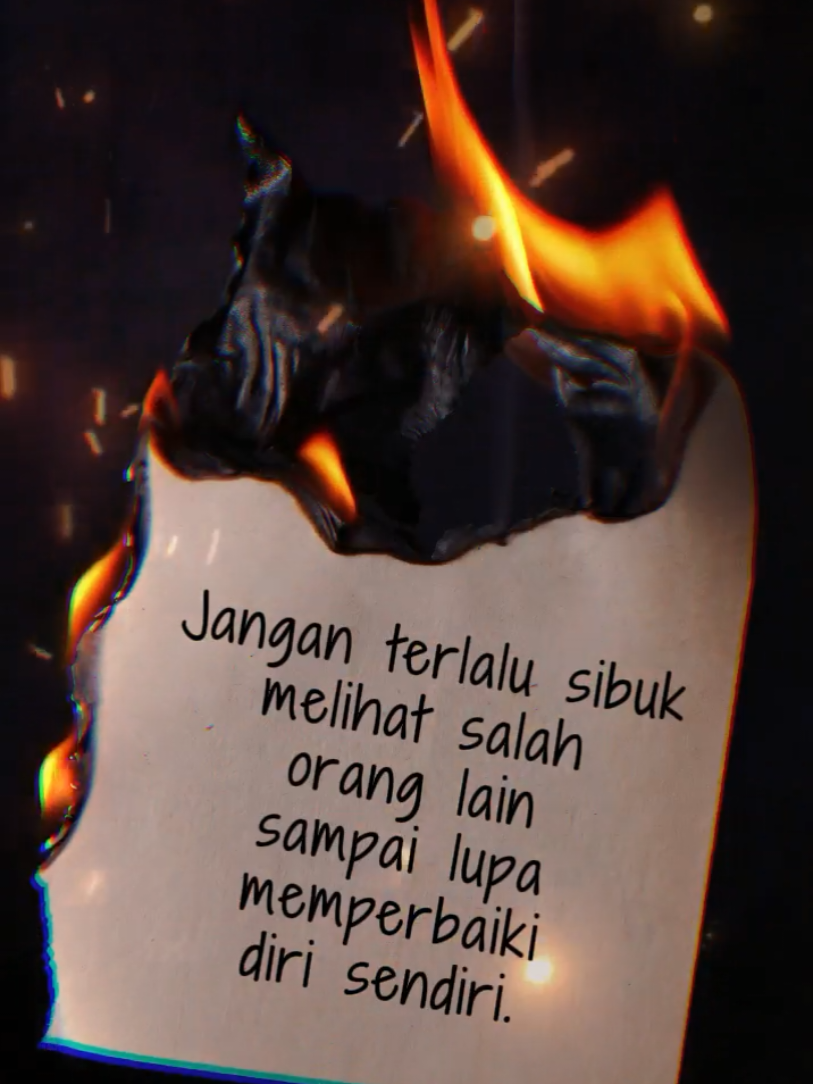 Jangan terlalu sibuk
melihat salah
orang lain
sampai lupa
memperbaiki
diri sendiri.